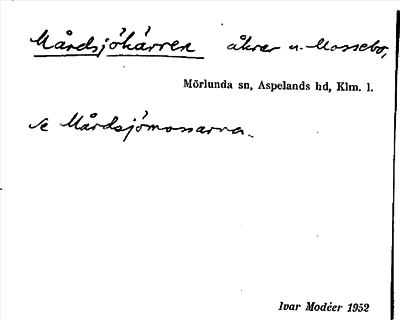 Mårdsjökärren åkrar u. Mossebo,
Mörlunda sn, Aspelands hd, Klm. l.
se Mårdsjömossarna.
Ivar Modéer 1952